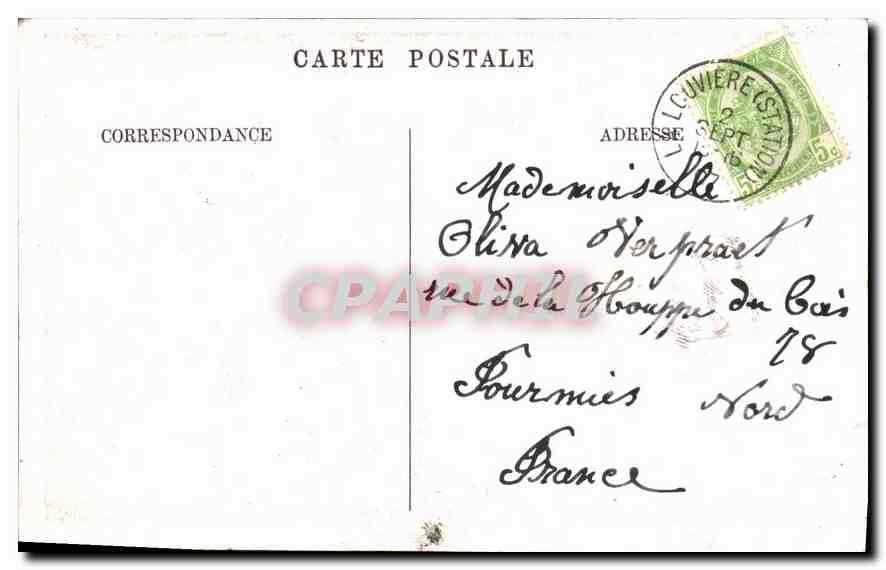 CARTE POSTALE
CORRESPONDANCE
ADRESSE
LA LOUVIERE (STATION)
2
SEPT
5 c
5
Mademoiselle
Oliva Verpraet
rue de la Houppe du Bois
78
Fourmies Nord
France
CPAPHIL